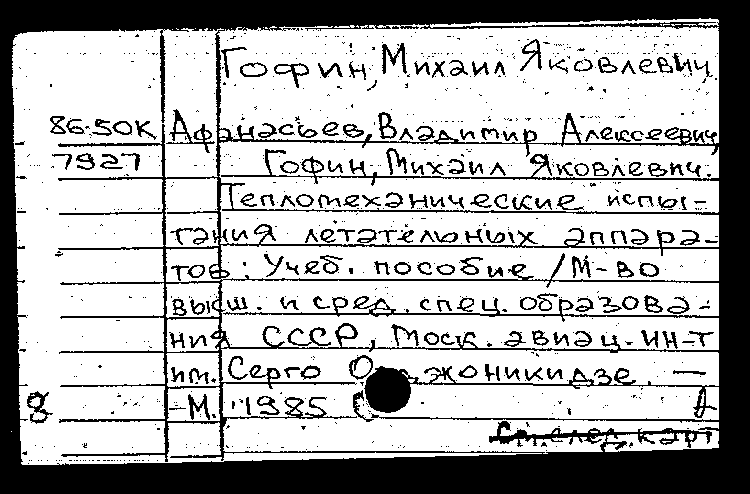 Гофин, Михаил Яковлевич
86-50К Афанасьев, Владимир Алексеевич,
7927 Гофин, Михаил Яковлевич.
Тепломеханические испы-
тания летательных аппара-
тов: Учеб. пособие / М-во
высш. и сред. спец. образова-
ния СССР, Моск. авиац. ин-т
им. Серго Орджоникидзе. —
8 -М., 1985
См. след. карт